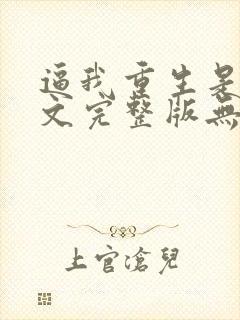 逼我重生是
文完整版無
上官滄兒